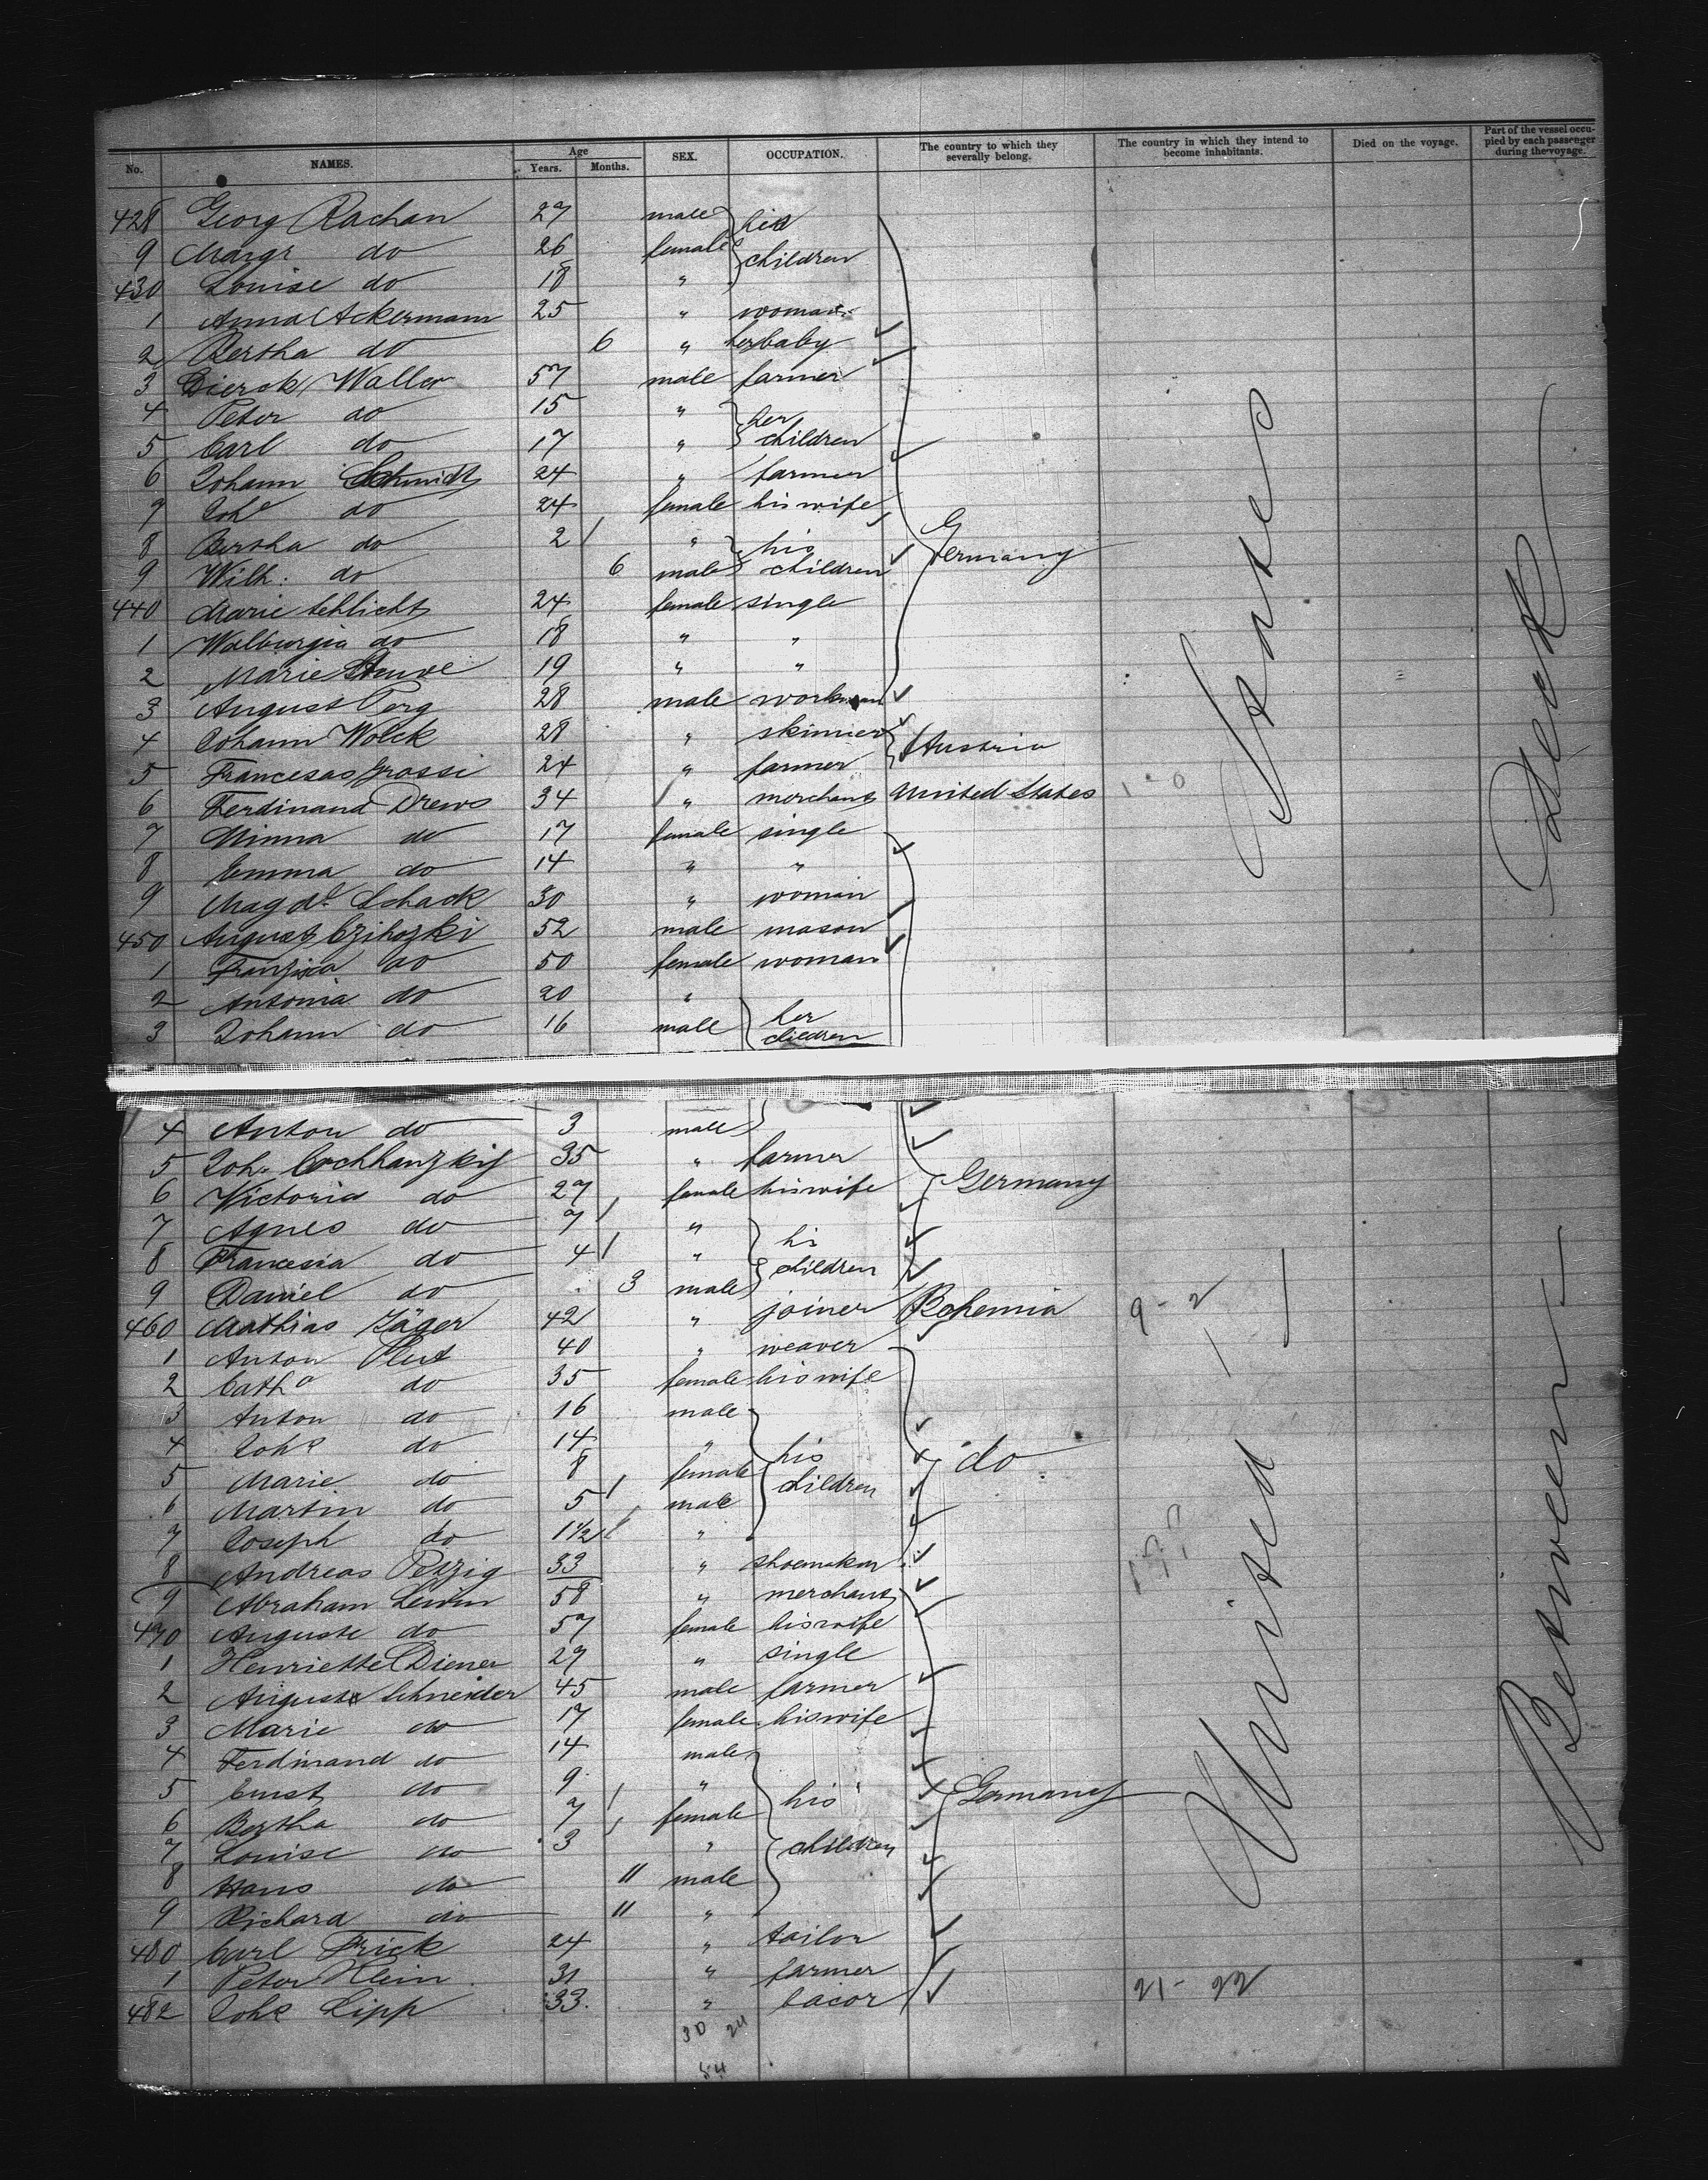 No. NAMES. Age Years. Months. SEX. OCCUPATION. The country to which they severally belong. The country in which they intend to become inhabitants. Died on the voyage. Part of the vessel occupied by each passenger during the voyage.
428 Georg Rachan 27 male his
9 Margr do 26 female children
430 Louise do 18 "
1 Anna Ackermann 25 " woman
2 Bertha do 6 " her baby
3 Dierck Waller 57 male farmer
4 Peter do 15 " her
5 Carl do 17 " children
6 Johann Schmidt 24 " farmer
7 Joh⁠a do 24 female his wife
8 Bertha do 2 " his Germany
9 Wilh. do 6 male children
440 Marie Schlicht 24 female single
1 Walburgia do 18 " "
2 Marie Stuve 19 " "
3 August Perg 28 male workman
4 Johann Wolck 28 " skinner Austria
5 Francesas Grossi 24 " farmer
6 Ferdinand Drews 34 " merchant United States
7 Minna do 17 female single
8 Emma do 14 " "
9 Magd. Schack 30 " woman
450 August Czihozki 52 male mason
1 Franziza do 50 female woman
2 Antonia do 20 "
3 Johann do 16 male her children
4 Anton do 3 male
5 Joh. Cochhanzkij 35 " farmer
6 Victoria do 27 female his wife Germany
7 Agnes do 7 "
8 Francesia do 4 " his children
9 Daniel do 3 male
460 Mathias Jäger 42 " joiner Bohemia 9-2
1 Anton Pleut 40 " weaver
2 Cath⁠a do 35 female his wife
3 Anton do 16 male
4 Joh⁠e do 14 " his do
5 Marie do 8 female children
6 Martin do 5 male
7 Joseph do 1 1/2 "
8 Andreas Petzig 33 " shoemaker
9 Abraham Lewin 58 " merchant
470 Auguste do 57 female his wife
1 Henriette Diener 29 " single
2 August Schneider 45 male farmer
3 Marie do 17 female his wife
4 Ferdinand do 14 male
5 Ernst do 9 " his Germany
6 Bertha do 7 female
7 Louise do 3 " children
8 Hans do 11 male
9 Richard do 11 "
480 Carl Frick 24 " tailor
1 Peter Klein 31 " farmer 21-22
482 Joh⁠e Lipp 33 " bacor
30 24
54
United States
Between Deck